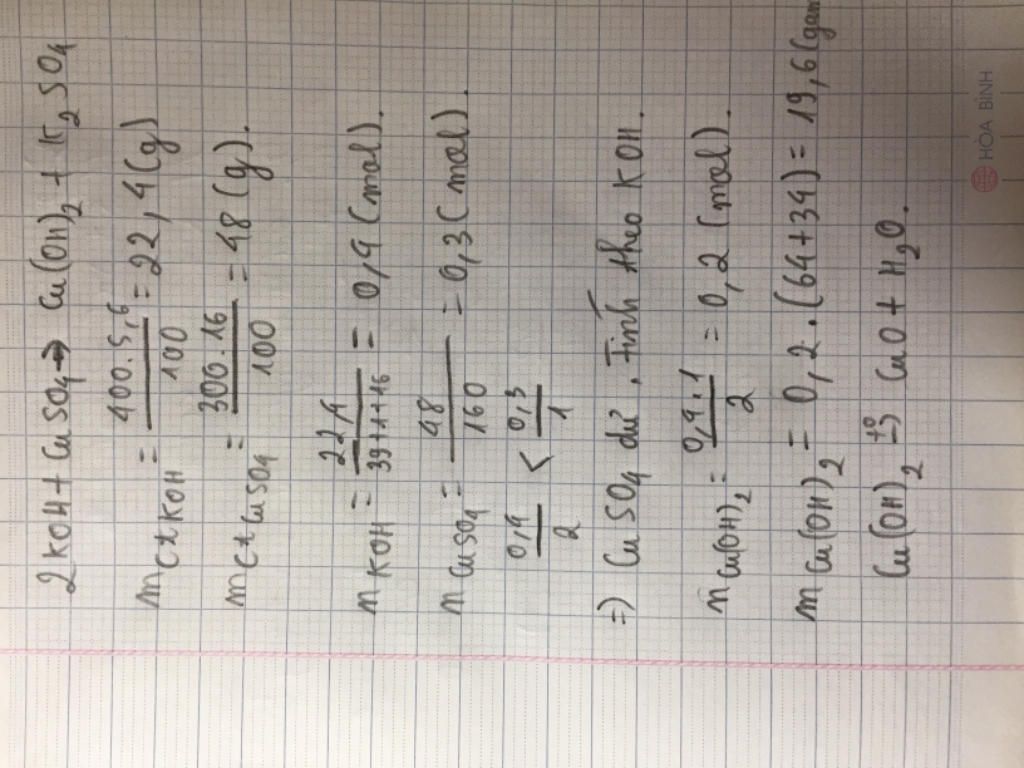 2KOH + CuSO4 → Cu(OH)2 + K2SO4
mct KOH = 400.5,6/100 = 22,4(g)
mct CuSO4 = 300.16/100 = 48(g).
nKOH = 22,4/39+1+16 = 0,4(mol).
nCuSO4 = 48/160 = 0,3(mol).
0,4/2 < 0,3/1
=) CuSO4 dư. Tính theo KOH.
nCu(OH)2 = 0,4.1/2 = 0,2(mol).
mCu(OH)2 = 0,2.(64+34) = 19,6(gam
Cu(OH)2 →to CuO + H2O.
HÒA BÌNH